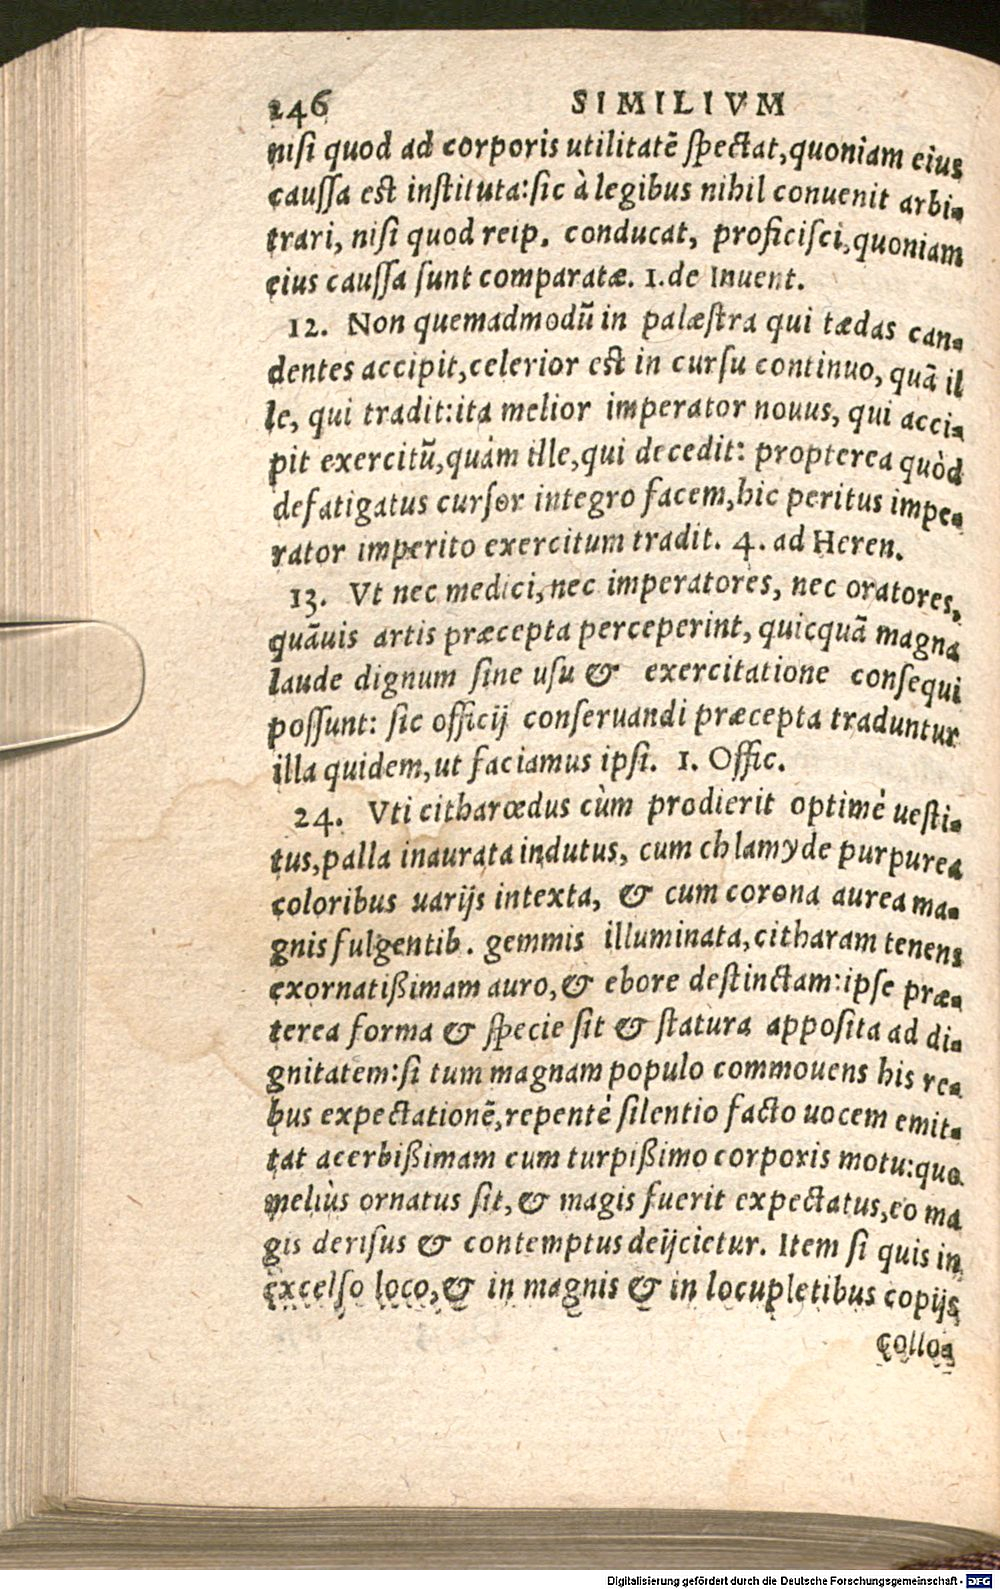 246 SIMILIVM
niſi quod ad corporis utilitatẽ ſpectat, quoniam eius
cauſſa est inſtituta: ſic à legibus nihil conuenit arbi-
trari, niſi quod reip. conducat, proficiſci, quoniam
eius cauſſa ſunt comparatæ. 1. de Inuent.
12. Non quemadmodũ in palæſtra qui tædas can-
dentes accipit, celerior est in curſu continuo, quã il
le, qui tradit: ita melior imperator nouus, qui acci-
pit exercitũ, quàm ille, qui decedit: propterea quòd
defatigatus curſor integro facem, hic peritus impe-
rator imperito exercitum tradit. 4. ad Heren.
13. Vt nec medici, nec imperatores, nec oratores,
quãuis artis præcepta perceperint, quicquã magna
laude dignum ſine uſu & exercitatione conſequi
poſſunt: ſic officij conſeruandi præcepta traduntur
illa quidem, ut faciamus ipſi. 1. Offic.
24. Vti citharœdus cùm prodierit optimè ueſti-
tus, palla inaurata indutus, cum chlamyde purpurea
coloribus uarijs intexta, & cum corona aurea ma-
gnis fulgentib. gemmis illuminata, citharam tenens
exornatißimam auro, & ebore deſtinctam: ipſe præ-
terea forma & ſpecie ſit & ſtatura appoſita ad di-
gnitatem: ſi tum magnam populo commouens his re-
bus expectationẽ, repentè ſilentio facto uocem emit-
tat acerbißimam cum turpißimo corporis motu: quo
meliùs ornatus ſit, & magis fuerit expectatus, eo ma
gis deriſus & contemptus deijcietur. Item ſi quis in
excelſo loco, & in magnis & in locupletibus copijs
collo-
Digitalisierung gefördert durch die Deutsche Forschungsgemeinschaft - DFG